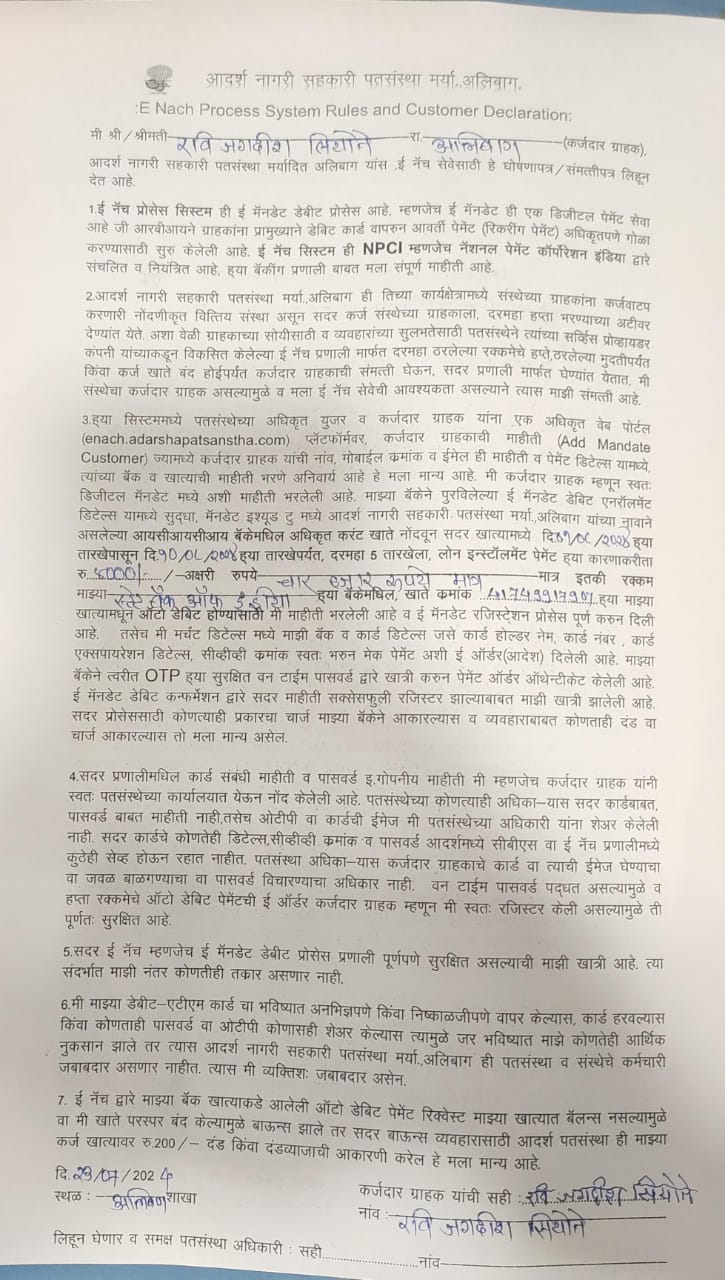 आदर्श नागरी सहकारी पतसंस्था मर्या.,अलिबाग.
:E Nach Process System Rules and Customer Declaration:
मी श्री/श्रीमती रवि जगदीश सियोने रा. अलिबाग (कर्जदार ग्राहक),
आदर्श नागरी सहकारी पतसंस्था मर्यादित अलिबाग यांस ,ई नॅच सेवेसाठी हे घोषणापत्र/संमत्तीपत्र लिहून
देत आहे.
1.ई नॅच प्रोसेस सिस्टिम ही ई मॅनडेट डेबीट प्रोसेस आहे. म्हणजेच ई मॅनडेट ही एक डिजीटल पेमेंट सेवा
आहे जी आरबीआयने ग्राहकांना प्रामुख्याने डेबिट कार्ड वापरुन आवर्ती पेमेंट (रिकरींग पेमेंट) अधिकृतपणे गोळा
करण्यासाठी सुरु केलेली आहे. ई नॅच सिस्टिम ही NPCI म्हणजेच नॅशनल पेमेंट कॉर्पोरेशन इंडिया द्वारे
संचलित व नियंत्रित आहे. हया बॅकींग प्रणाली बाबत मला संपूर्ण माहीती आहे.
2.आदर्श नागरी सहकारी पतसंस्था मर्या.,अलिबाग ही तिच्या कार्यक्षेत्रामध्ये संस्थेच्या ग्राहकांना कर्जवाटप
करणारी नोंदणीकृत वित्तिय संस्था असून सदर कर्ज संस्थेच्या ग्राहकाला, दरमहा हप्ता भरण्याच्या अटीवर
देण्यांत येते. अशा वेळी ग्राहकाच्या सोयीसाठी व व्यवहारांच्या सुलभतेसाठी पतसंस्थेने त्यांच्या सर्व्हिस प्रोव्हायडर
कंपनी यांच्याकडून विकसित केलेल्या ई नॅच प्रणाली मार्फत दरमहा ठरलेल्या रक्कमेचे हप्ते,ठरलेल्या मुदतीपर्यत
किंवा कर्ज खाते बंद होईपर्यंत कर्जदार ग्राहकाची संमत्ती घेऊन, सदर प्रणाली मार्फत घेण्यांत येतात, मी
संस्थेचा कर्जदार ग्राहक असल्यामुळे व मला ई नॅच सेवेची आवश्यकता असल्याने त्यास माझी संमत्ती आहे.
3.हया सिस्टिममध्ये पतसंस्थेच्या अधिकृत युजर व कर्जदार ग्राहक यांना एक अधिकृत वेब पोर्टल
(enach.adarshapatsanstha.com) प्लॅटफॉर्मवर, कर्जदार ग्राहकाची माहीती (Add Mandate
Customer) ज्यामध्ये कर्जदार ग्राहक यांची नांव, मोबाईल क्रमांक व ईमेल ही माहीती व पेमेंट डिटेल्स यामध्ये,
त्यांच्या बॅक व खात्याची माहीती भरणे अनिवार्य आहे हे मला मान्य आहे. मी कर्जदार ग्राहक म्हणून स्वतः
डिजीटल मॅनडेट मध्ये अशी माहीती भरलेली आहे. माझ्या बॅकेने पुरविलेल्या ई मॅनडेट डेबिट एनरॉलमेंट
डिटेल्स यामध्ये सुद्धा, मॅनडेट इश्यूड टु मध्ये आदर्श नागरी सहकारी पतसंस्था मर्या.,अलिबाग यांच्या नावाने
असलेल्या आयसीआयसीआय बॅकेमधिल अधिकृत करंट खाते नोंदवून सदर खात्यामध्ये दि. /08/2024 हया
तारखेपासून दि.10/08/ हया तारखेपर्यंत, दरमहा 5 तारखेला, लोन इन्स्टॉलमेंट पेमेंट हया कारणाकरीता
रु.4000/- /-अक्षरी रुपये चार हजार रुपये मात्र मात्र इतकी रक्कम
माझ्या स्टेट बँक ऑफ इंडिया हया बॅकेमधिल, खाते क्रमांक 41749917907 हया माझ्या
खात्यामधून ऑटो डेबिट होण्यासाठी मी माहीती भरलेली आहे व ई मॅनडेट रजिस्ट्रेशन प्रोसेस पूर्ण करुन दिली
आहे. तसेच मी मर्चंट डिटेल्स मध्ये माझी बॅक व कार्ड डिटेल्स जसे कार्ड होल्डर नेम, कार्ड नंबर , कार्ड
एक्सपायरेशन डिटेल्स, सीव्हीव्ही क्रमांक स्वतः भरुन मेक पेमेंट अशी ई ऑर्डर(आदेश) दिलेली आहे. माझ्या
बॅकेने त्वरीत OTP हया सुरक्षित वन टाईम पासवर्ड द्वारे खात्री करुन पेमेंट ऑर्डर ऑथेन्टीकेट केलेली आहे.
ई मॅनडेट डेबिट कन्फर्मेशन द्वारे सदर माहीती सक्सेसफुली रजिस्टर झाल्याबाबत माझी खात्री झालेली आहे.
सदर प्रोसेससाठी कोणत्याही प्रकारचा चार्ज माझ्या बॅकेने आकारल्यास व व्यवहाराबाबत कोणताही दंड वा
चार्ज आकारल्यास तो मला मान्य असेल.
4.सदर प्रणालीमधिल कार्ड संबंधी माहीती व पासवर्ड इ.गोपनीय माहीती मी म्हणजेच कर्जदार ग्राहक यांनी
स्वतः पतसंस्थेच्या कार्यालयात येऊन नोंद केलेली आहे. पतसंस्थेच्या कोणत्याही अधिका–यास सदर कार्डबाबत,
पासवर्ड बाबत माहीती नाही,तसेच ओटीपी वा कार्डची ईमेज मी पतसंस्थेच्या अधिकारी यांना शेअर केलेली
नाही. सदर कार्डचे कोणतेही डिटेल्स,सीव्हीव्ही क्रमांक व पासवर्ड आदर्शमध्ये सीबीएस वा ई नॅच प्रणालीमध्ये
कुठेही सेव्ह होऊन रहात नाहीत. पतसंस्था अधिका–यास कर्जदार ग्राहकाचे कार्ड वा त्याची ईमेज घेण्याचा
वा जवळ बाळगण्याचा वा पासवर्ड विचारण्याचा अधिकार नाही. वन टाईम पासवर्ड पद्धत असल्यामुळे व
हप्ता रक्कमेचे ऑटो डेबिट पेमेंटची ई ऑर्डर कर्जदार ग्राहक म्हणून मी स्वतः रजिस्टर केली असल्यामुळे ती
पूर्णतः सुरक्षित आहे.
5.सदर ई नॅच म्हणजेच ई मॅनडेट डेबीट प्रोसेस प्रणाली पूर्णपणे सुरक्षित असल्याची माझी खात्री आहे. त्या
संदर्भात माझी नंतर कोणतीही तक्रार असणार नाही.
6.मी माझ्या डेबीट–एटीएम कार्ड चा भविष्यात अनभिज्ञपणे किंवा निष्काळजीपणे वापर केल्यास, कार्ड हरवल्यास
किंवा कोणताही पासवर्ड वा ओटीपी कोणासही शेअर केल्यास त्यामुळे जर भविष्यात माझे कोणतेही आर्थिक
नुकसान झाले तर त्यास आदर्श नागरी सहकारी पतसंस्था मर्या.,अलिबाग ही पतसंस्था व संस्थेचे कर्मचारी
जबाबदार असणार नाहीत. त्यास मी व्यक्तिशः जबाबदार असेन.
7. ई नॅच द्वारे माझ्या बॅक खात्याकडे आलेली ऑटो डेबिट पेमेंट रिक्वेस्ट माझ्या खात्यात बॅलन्स नसल्यामुळे
वा मी खाते परस्पर बंद केल्यामुळे बाऊन्स झाले तर सदर बाऊन्स व्यवहारासाठी आदर्श पतसंस्था ही माझ्या
कर्ज खात्यावर रु.200/– दंड किंवा दंडव्याजाची आकारणी करेल हे मला मान्य आहे.
दि.23/07/2024
स्थळ : अलिबाग शाखा
कर्जदार ग्राहक यांची सही : रवि जगदीश सियोने
नांव : रवि जगदीश सियोने
लिहून घेणार व समक्ष पतसंस्था अधिकारी : सही नांव